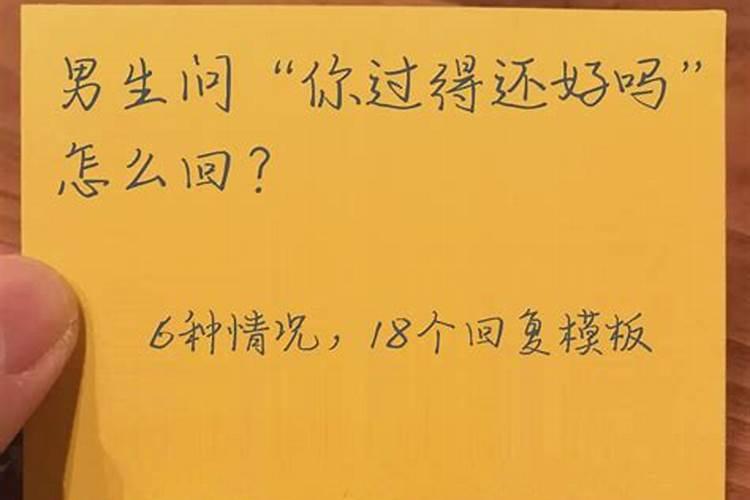 男生问“你过得还好吗”
怎么回？
6种情况，18个回复模板